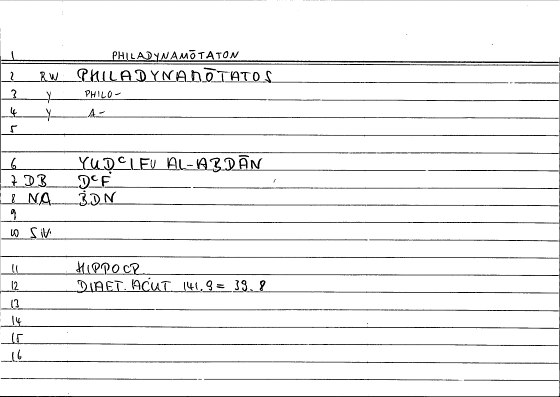 1 PHILADYNAMŌTATON
2 RW PHILADYNAMŌTATOS
3 Y PHILO-
4 Y A-
5
6 YUDᶜIFU AL-ABDĀN
7 DB DᶜF
8 NA BDN
9
10 SIV.
11 HIPPOCR.
12 DIAET. ACUT. 141.9 = 39.8
13
14
15
16